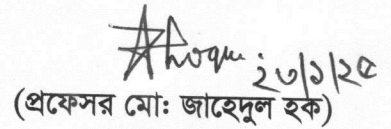 ২৩/১/২৫
(প্রফেসর মো: জাহেদুল হক)